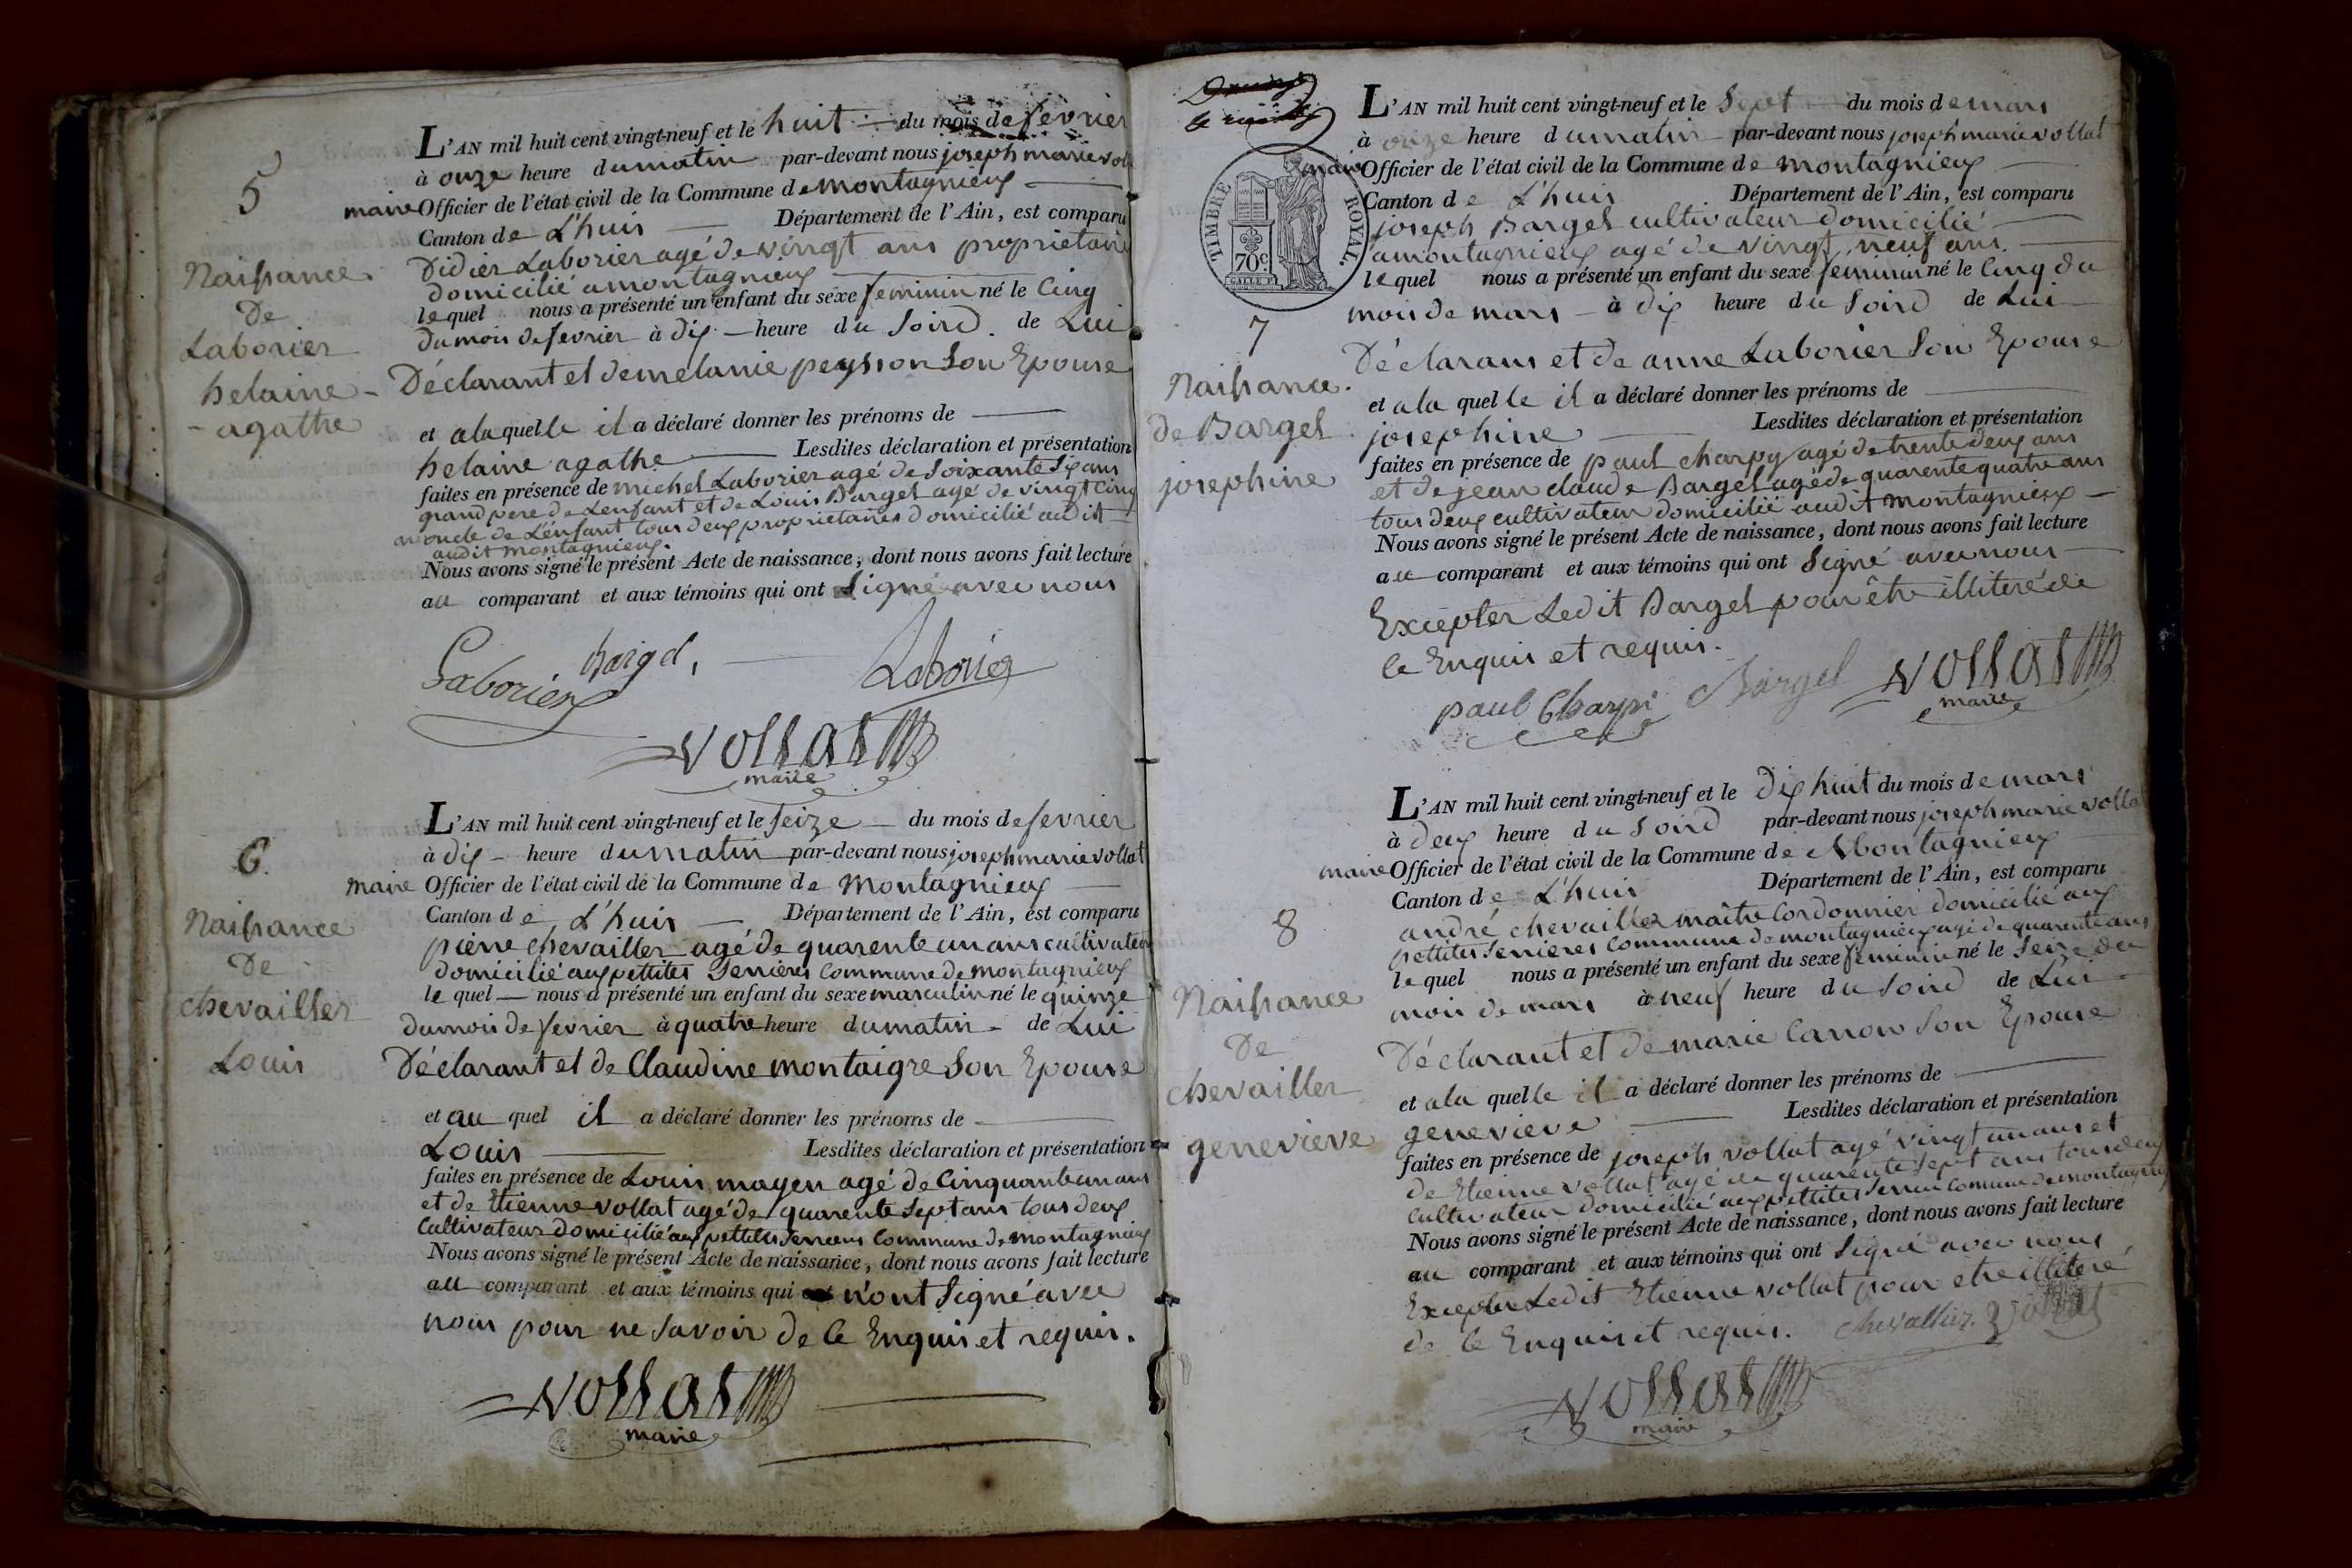 5
Naissance
De
Laborier
helaine -
- agathe
L'AN mil huit cent vingt-neuf et le huit du mois de fevrier
à onze heure du matin par-devant nous joseph marie
maire Officier de l'état civil de la Commune de montagnieux
Canton de L'huis Département de l'Ain, est comparu
Didier Laborier agé de vingt ans proprietaire
domicilié a montagnieux
lequel nous a présenté un enfant du sexe feminin né le Cinq
du mois de fevrier à dix heure du Soird. de Lui
Déclarant et de melanie peysson Son Epouse
et a laquelle il a déclaré donner les prénoms de
helaine agathe Lesdites déclaration et présentation
faites en présence de michel Laborier agé de Soixante Six ans
grand pere de Lenfant et de Louis Bargel agé de vingt Cinq
oncle de L'énfant tous deux proprietaires domicilié audit
audit montagnieux.
Nous avons signé le présent Acte de naissance, dont nous avons fait lecture
au comparant et aux témoins qui ont Signé avec nous
Laborier bargel, Laborier
vollat
maire
6.
Naissance
De
chevailler
Louis
L'AN mil huit cent vingt-neuf et le seize du mois de fevrier
à dix heure du matin par-devant nous joseph marie vollat
maire Officier de l'état civil de la Commune de Montagnieux
Canton de L'huis Département de l'Ain, est comparu
pierre chevailler agé de quarente un ans cultivateur
domicilié aux pettites Serrieres Commune de montagnieux
le quel nous a présenté un enfant du sexe masculin né le quinze
du mois de fevrier à quatre heure du matin de Lui
Déclarant et de Claudine montaigre Son Epouse
et au quel il a déclaré donner les prénoms de
Louis Lesdites déclaration et présentation
faites en présence de Louis mayen agé de Cinquante un ans
et de Etienne vollat agé de quarente Sept ans tous deux
Cultivateur domicilié aux pettites Commune de montagnieux
Nous avons signé le présent Acte de naissance, dont nous avons fait lecture
au comparant et aux témoins qui n'ont Signé avec
nous pour ne Savoir de Ce Enquis et requis.
vollat
maire
TIMBRE ROYAL.
70 c
7
Naissance.
de Bargel
josephine
L'AN mil huit cent vingt-neuf et le Sept du mois de mars
à onze heure du matin par-devant nous joseph marie vollat
maire Officier de l'état civil de la Commune de montagnieux
Canton de L'huis Département de l'Ain, est comparu
joseph Bargel cultivateur domicilié
a montagnieux agé de vingt neuf ans.
lequel nous a présenté un enfant du sexe feminin né le Cinq du
mois de mars à dix heure du Soird de Lui
Déclarans et de anne Laborier Son Epouse
et a la quelle il a déclaré donner les prénoms de
josephine Lesdites déclaration et présentation
faites en présence de paul charpy agé de trente deux ans
et de jean claude Bargel agé de quarente quatre ans
tous deux cultivateur domicilié audit montagnieux
Nous avons signé le présent Acte de naissance, dont nous avons fait lecture
au comparant et aux témoins qui ont Signé avec nous
Excepter Ledit Bargel pour être illiteré de
Ce Enquis et requis.
paul Charpi Bargel vollat
maire
8
Naissance
De
chevailler
genevieve
L'AN mil huit cent vingt-neuf et le dix huit du mois de mars
à deux heure du Soird par-devant nous joseph marie vollat
maire Officier de l'état civil de la Commune de Montagnieux
Canton de L'huis Département de l'Ain, est comparu
andré chevailler maître Cordonnier domicilié aux
pettites Serrieres Commune de montagnieux agé de quarente ans
lequel nous a présenté un enfant du sexe feminin né le Seize du
mois de mars à neuf heure du Soird de Lui
Déclarant et de marie Son Epouse
et a la quelle il a déclaré donner les prénoms de
genevieve Lesdites déclaration et présentation
faites en présence de joseph vollat agé vingt un ans et
de Etienne vollat agé de quarente Sept ans tous deux
Cultivateur domicilié aux pettites Comune de
Nous avons signé le présent Acte de naissance, dont nous avons fait lecture
au comparant et aux témoins qui ont Signé avec nous
Excepter Ledit Etienne vollat pour être illiteré
de Ce Enquis et requis. chevallier. vollat
vollat
maire